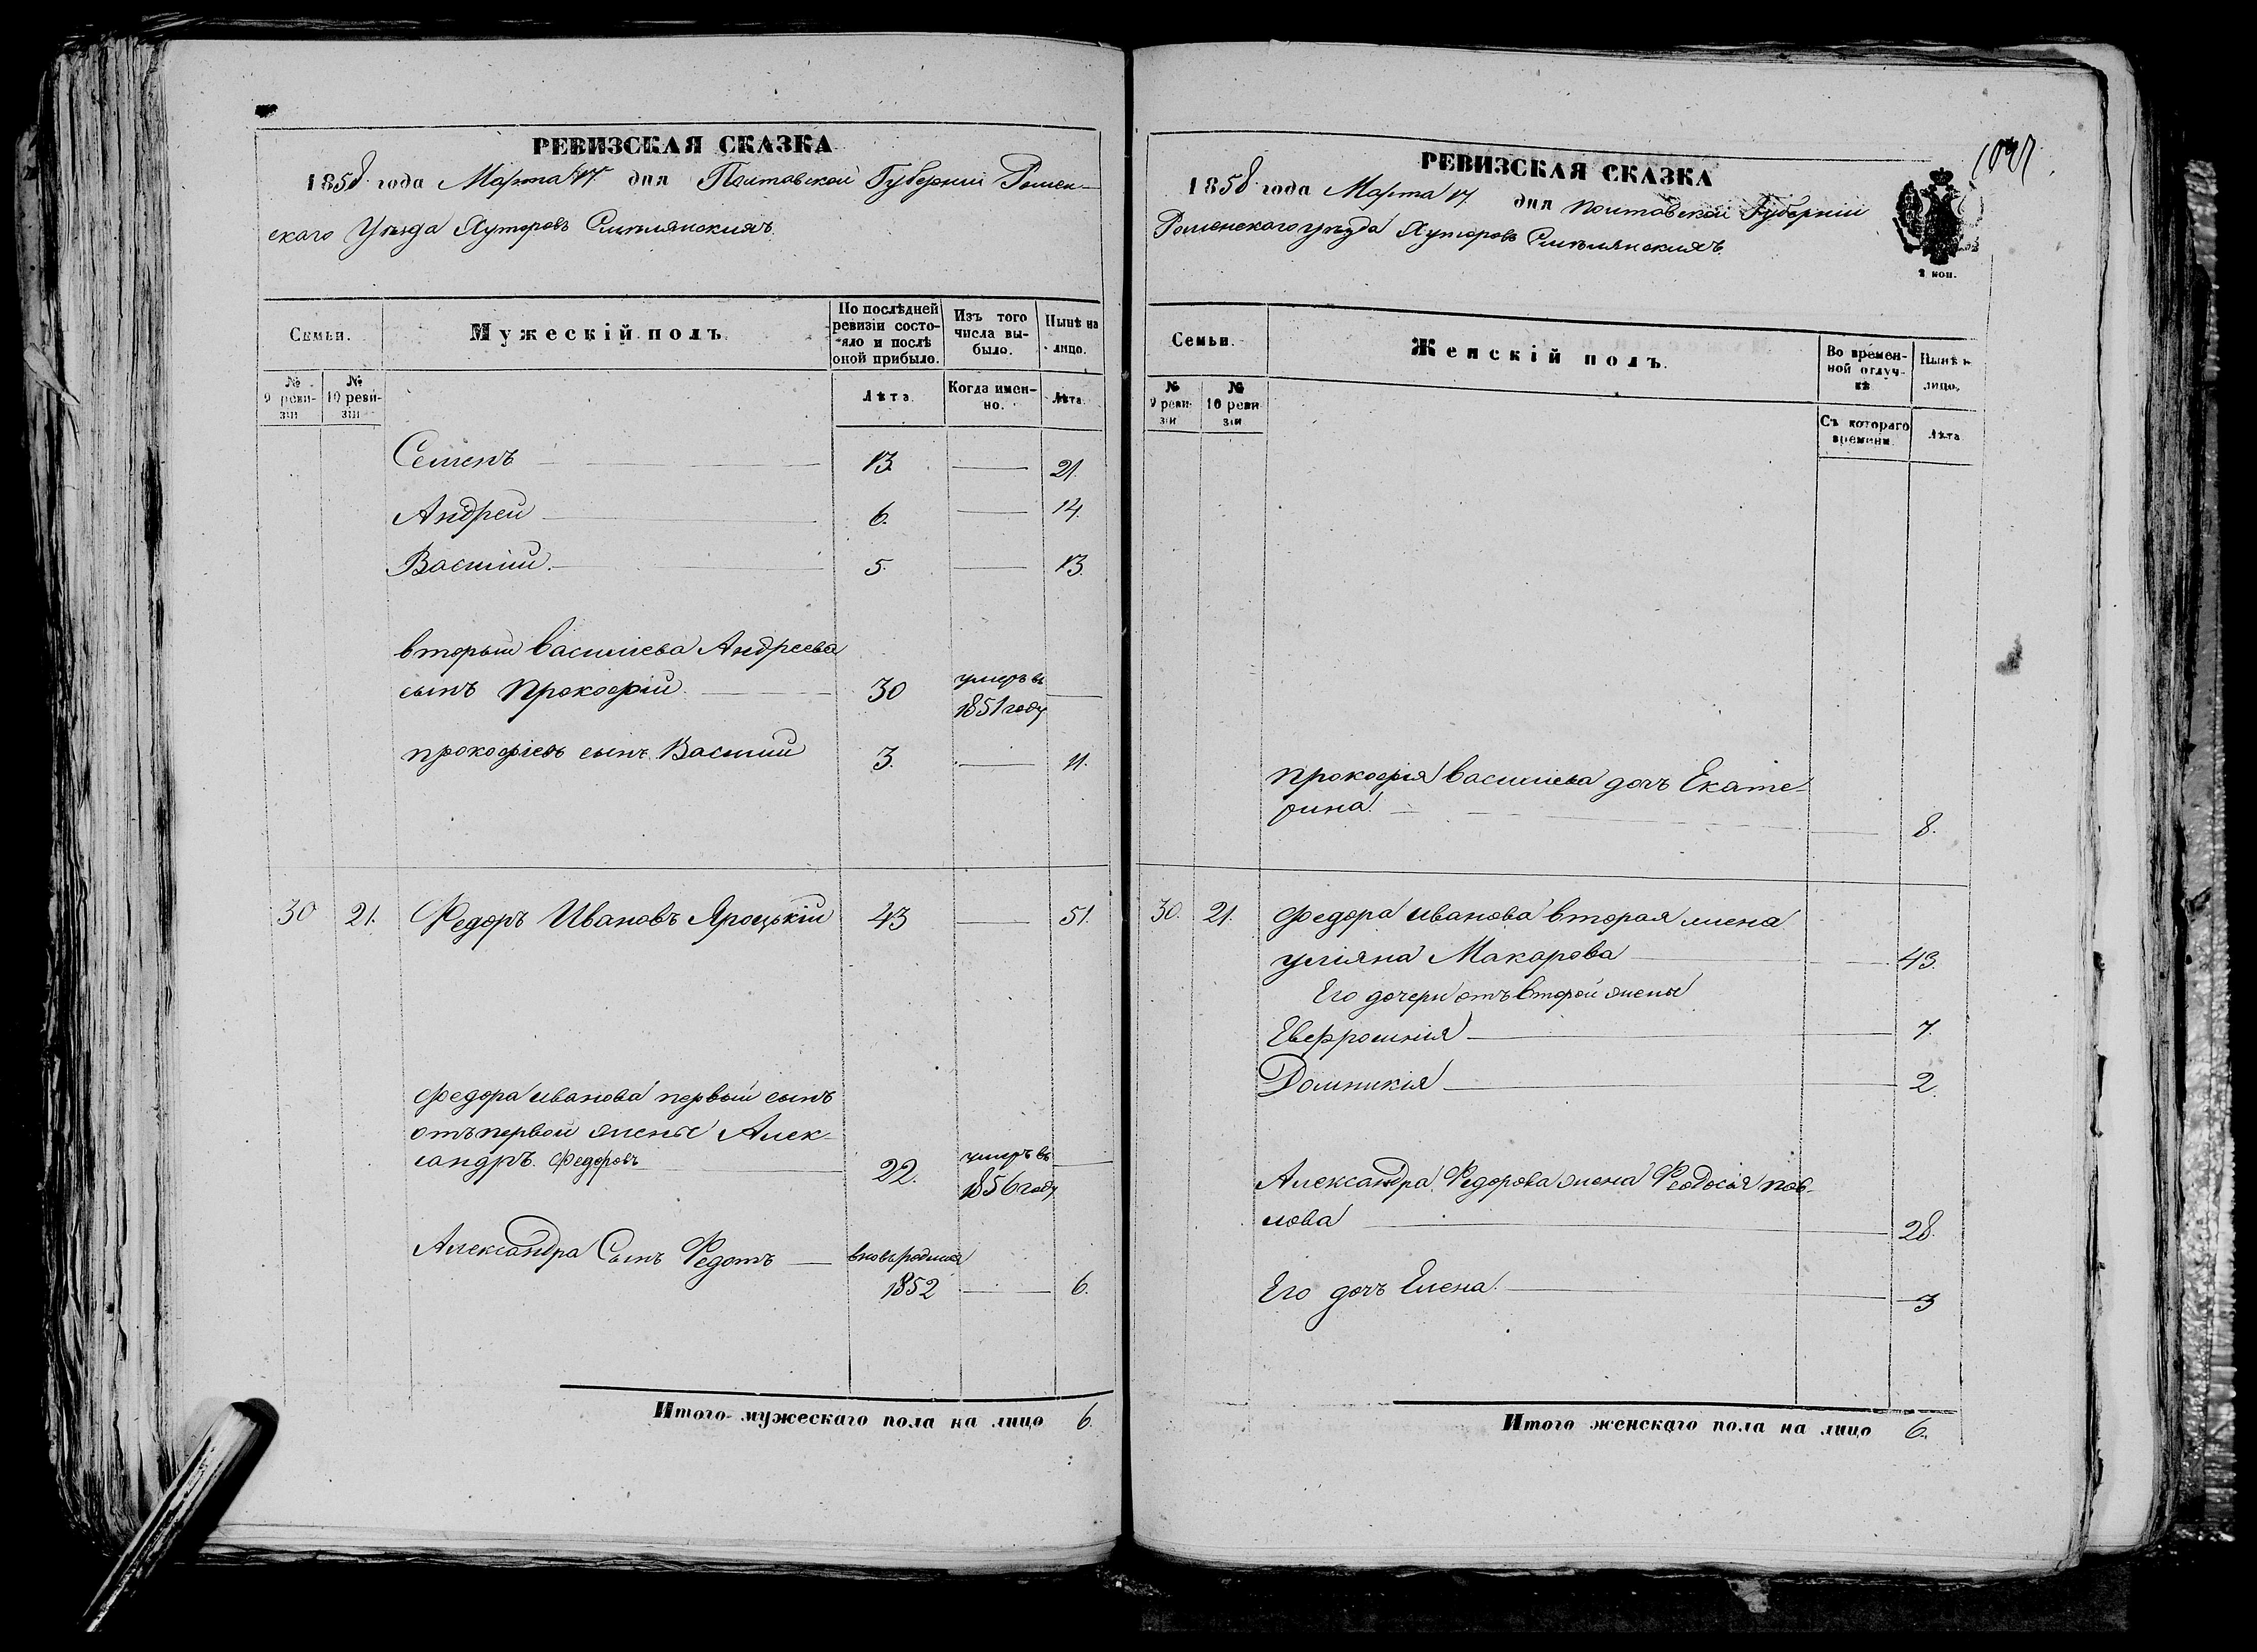 РЕВИЗСКАЯ СКАЗКА
1858 года Марта 17 дня Полтавской Губерніи Ромен-
скаго Уѣзда Хуторовъ Смѣлянскихъ.
Семьи.
Мужескій полъ.
По послѣдней ревизіи состояло и послѣ оной прибыло.
Изъ того числа выбыло.
Нынѣ на лицо.
№ 9 ревизіи
№ 10 ревизіи
Лѣта.
Когда именно.
Лѣта.
Семенъ 13. 21.
Андрей 6. 14.
Василій. 5. 13.
вторый Василіева Андреева
сынъ Прокофій 30 умеръ въ 1851 году
прокофіевъ сынъ Василий 3. 11.
30 21. Федоръ Ивановъ Яроцькій 43 51.
Федора иванова первый сынъ
отъ первой жены Алек-
сандръ Федоровъ 22. умеръ въ 1856 году
Александра Сынъ Федотъ вновь родился 1852 6.
Итого мужескаго пола на лицо 6.
РЕВИЗСКАЯ СКАЗКА
1858 года Марта 17 дня Полтавской Губерніи
Роменскаго уѣзда Хуторовъ Смѣлянскихъ.
2 коп.
Семьи.
Женскій полъ.
Во временной отлучкѣ
Нынѣ н лицо.
№ 9 ревизіи
№ 10 ревизіи
Съ котораго времени.
Лѣта
прокофія василіева дочь Екате-
рина. 8.
30. 21. Федора иванова вторая жена
уліяна Макарова 43.
Его дочери отъ второй жены
Евфросинія 7.
Домникія 2.
Александра Федорова жена Феодосія пав-
лова 28.
Его дочь Елена. 3
Итого женскаго пола на лицо 6.